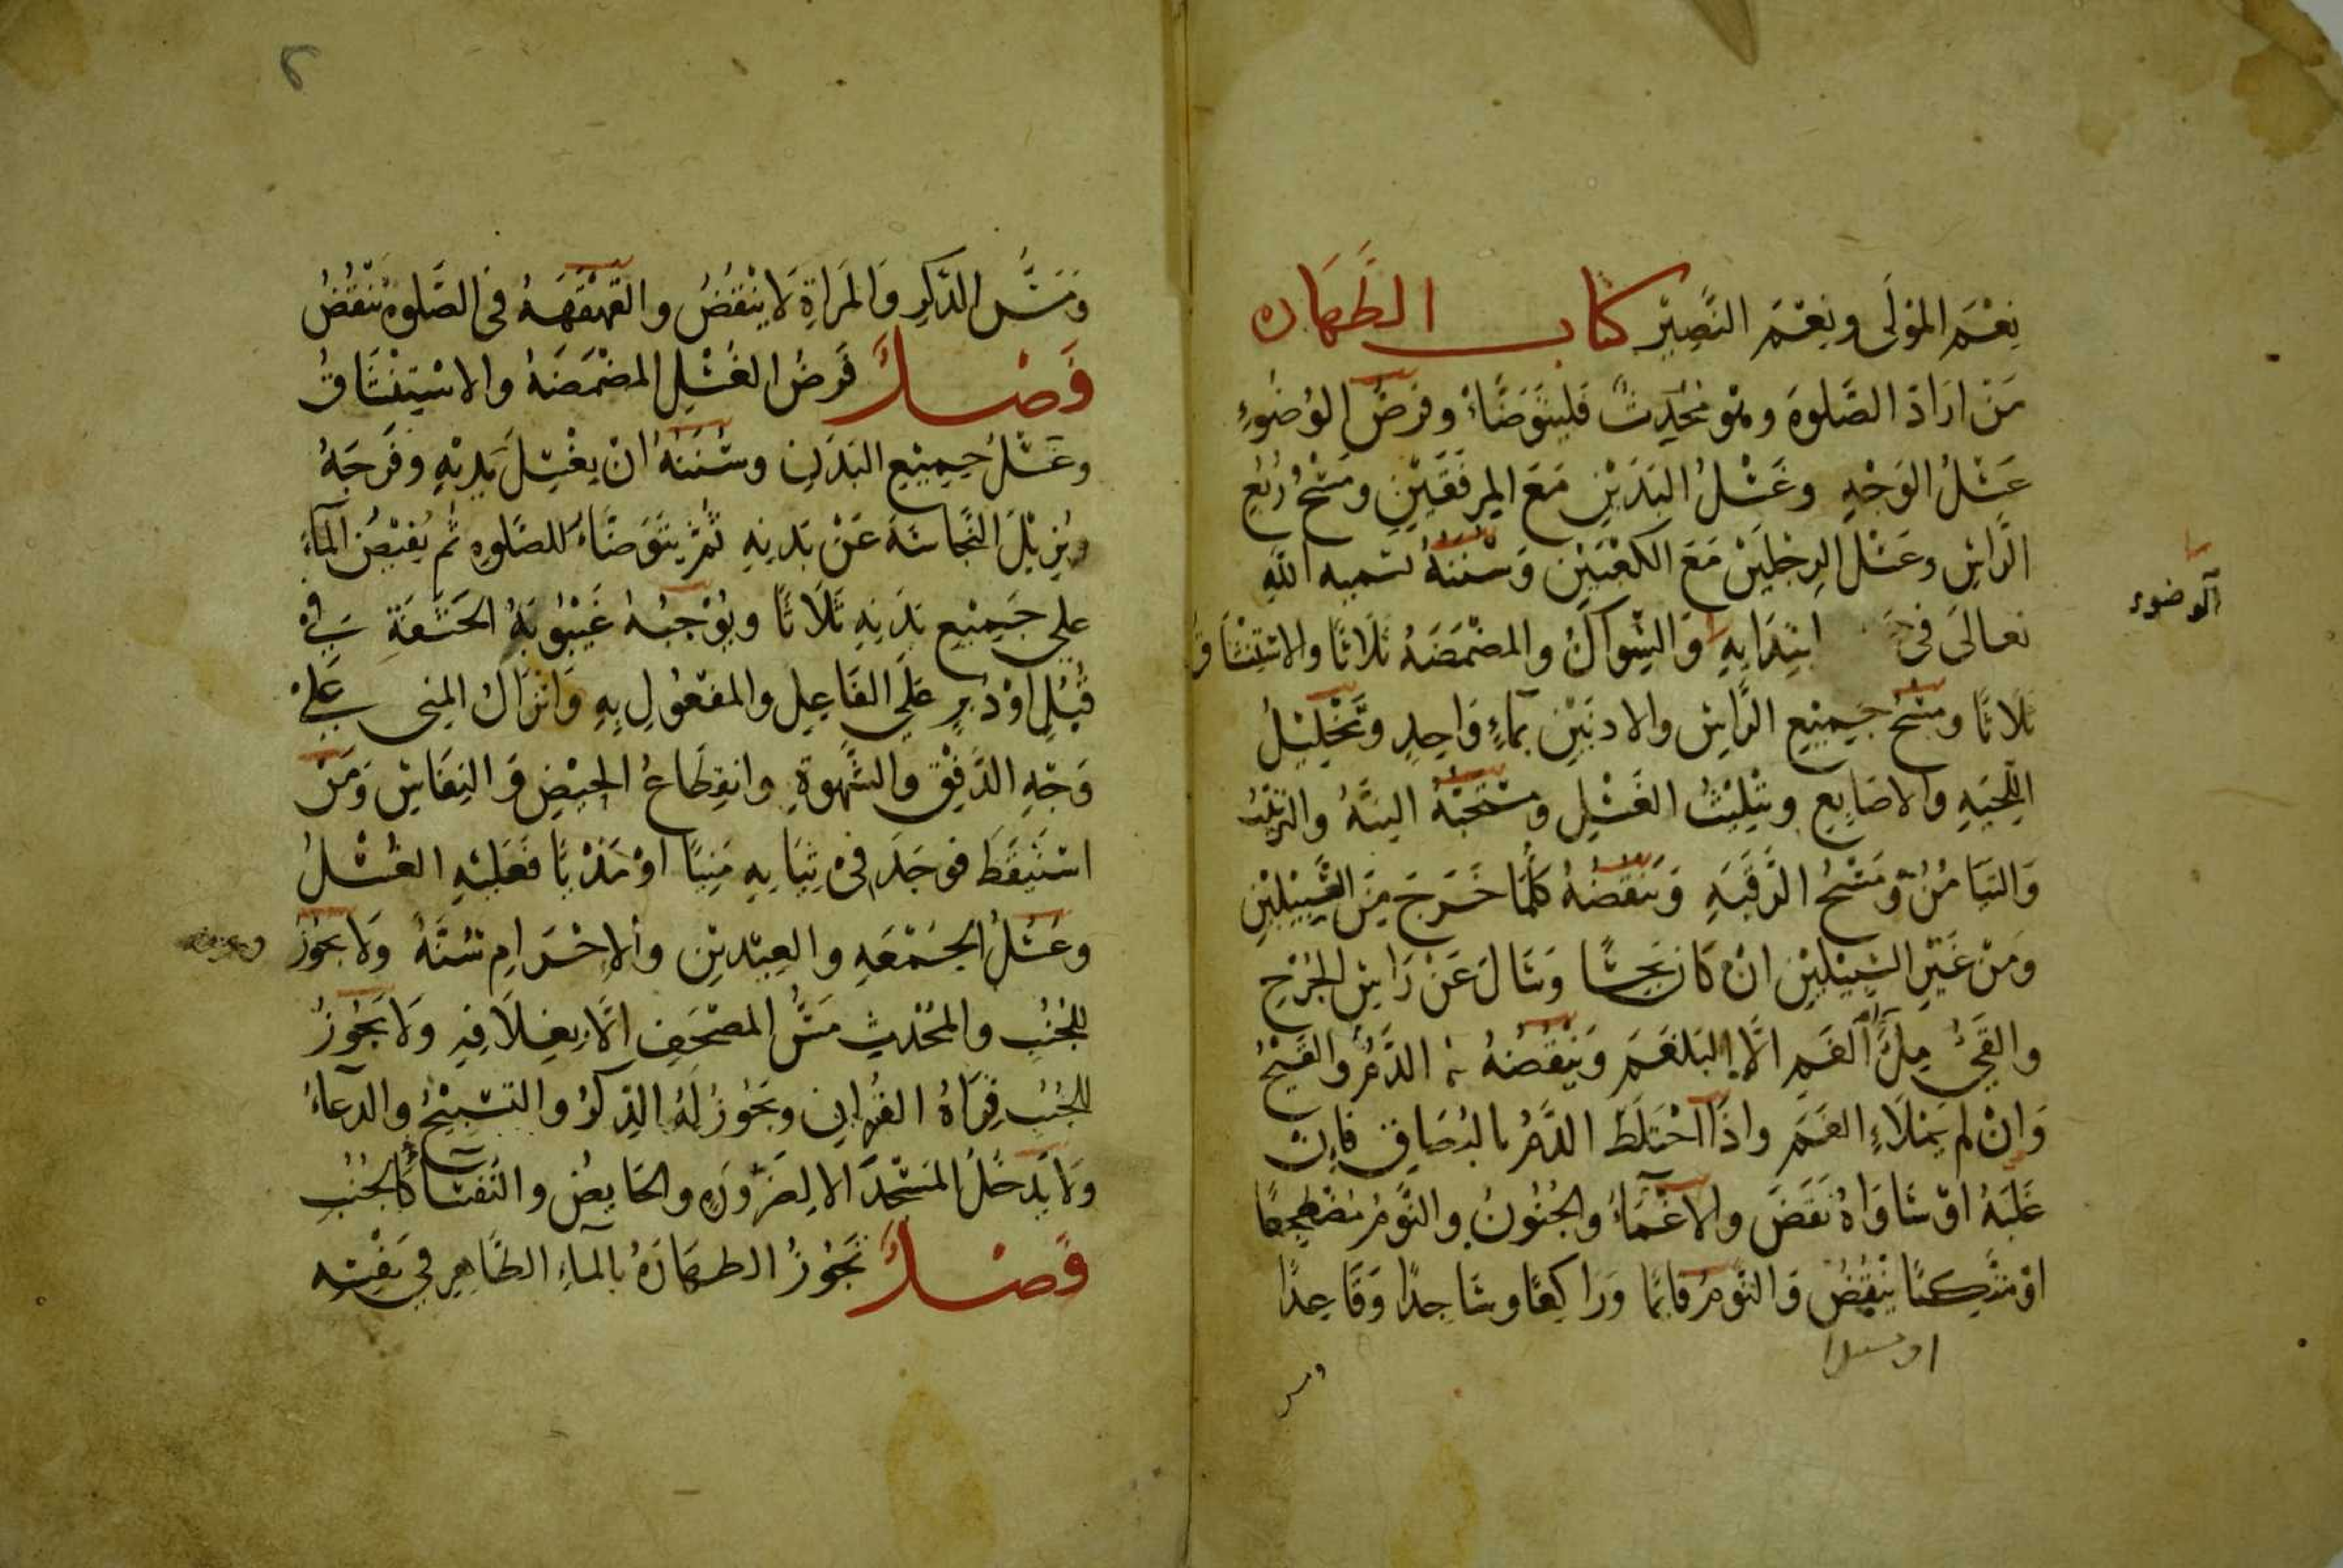 نِعْمَ المَوْلَى ونِعْمَ النَّصِيْر كتاب الطَّهَاره
مَنْ ارَادَ الصَّلوةَ وهُو مُحْدِثٌ فَليَتَوَضَّاءْ وفرضُ الوُضُوءِ
غَسْلُ الوَجْهِ وغَسْلُ اليَدَيْنِ مَعَ المِرفَقَيْنِ ومَسْحُ رُبُعِ
الرَّاسِ وغَسْل الرِجْلَيَنْ مَعَ الكَعْبَيْنِ وَسُنَنَهُ تسميه الله
تعالَى فى ابْتِدَايِهِ وَالسِّوَاكُ والمَضْمَضَهُ ثَلَاثًا والاسْتِنْشَاقُ
ثلَاثًا ومَسْحُ جَمِيْعِ الرَّاسِ والادنَيْنِ بمَآءٍ وَاحِدٍ وتَخْلِيْلُ
اللِّحيَهِ والاصَابِعِ وتثْلِيْثُ الغَسْلِ ومسْتَحَبُّهُ النيَّهُ والترتيْبُ
وَالتيَامُنُ ومَسْحُ الرَّقَبَهِ وَيَنقضُهُ كلَّمَا خَرَجَ مِنَ السَّبِيْلَيْنِ
ومَنْ غَيْرِ السَّبِيْلَيْنِ انْ كَانَ نجسًا وَسَالَ عَنْ رَاسِ الجُرْحِ
والقَيُ مِلَْ الفَمِ الَّا البَلغَمَ وَيَنْقُضُهُ الدَّمُ والقَيْحُ
وَانْ لم يَمْلَاءِ الفَمَ واذَا اخْتَلَطَ الدَّمُ بالبُصَاقِ فَاِنْ
غَلَبَهُ اوْ سَاوَاهُ نَقَضَ والاغْمَآءُ والجُنُونُ والنَّوْمُ مُضْطَجِعًا
اوْ مُتَّكِئًا يَنْقُضُ وَالنَّوْمُ قَايمًا وَرَاكِعًا وسَاجِدًا وَقَاعِدًا
ومس
الوضوء
وَمَسُّ الذَّكَرِ وَالمَراةِ لَا يَنْقُضُ والقَهْقَهَهُ فى الصَّلوةِ تَنْقُضُ
فَصْلٌ فَرضُ الغُسْلِ المَضْمَضَهُ والاسْتِنْشَاقُ
وغَسْلُ جَمِيْعِ البَدَنِ وسُنَنَهُ انْ يغْسِلَ يَدَيْهِ وفَرْجَهُ
ويُزِيْلَ النَّجَاسَهَ عَنْ بَدَنِهِ ثمَّ يتَوَضَّاءُ للصَّلوهِ ثُم يُفِيْضُ المَآءَ
علي جَمِيْعِ بَدَنِهِ ثَلَاثًا ويُوْجِبُهُ غَيْبُوْبَةُ الحَشَفَةِ فِي
قُبُلٍ اوْ دُبُرٍ عَلَى الفَاعِلِ والمفْعُولِ بِهِ وَانْزَالُ المنِى عَلَى
وَجْهِ الدَّفْقِ والشَّهوَةِ وانقِطَاعُ الحَيْضِ وَالنِفَاسِ وَمَنْ
اسْتَيقَظَ فوجَدَ فى ثِيَابِهِ مَنِيًا اوْ مَذْيًا فَعَلَيْهِ الغُسْلُ
وغُسْلُ الجُمْعَهِ والعِيْدَيْنِ والاِحْرَامِ سُنَّهٌ وَلَا يجُوزُ
للجُنُبِ والمُحْدِثِ مَسُّ المصْحَفِ اِلَّا بِغِلَافِهِ وَلَا يَجُوزُ
للجُنُبِ قِرَاهُ القُرْانِ ويَجُوزُ لَهُ الذِكرُ والتسْبِيْحُ والدعَآءُ
وَلَا يَدخلُ المَسْجدَ الا لِضَرُورَهٍ والحَايِضُ والنُّفَسَآءُ كَالجنُبِ
فَصْلٌ تَجُوزُ الطهَارَهُ بالمآءِ الطَّاهِرِ في نَفْسِه